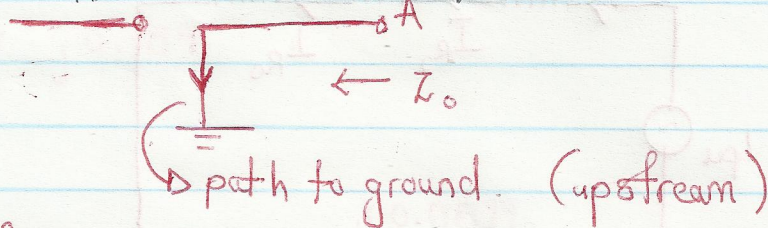 A
← I₀
path to ground. (upstream)